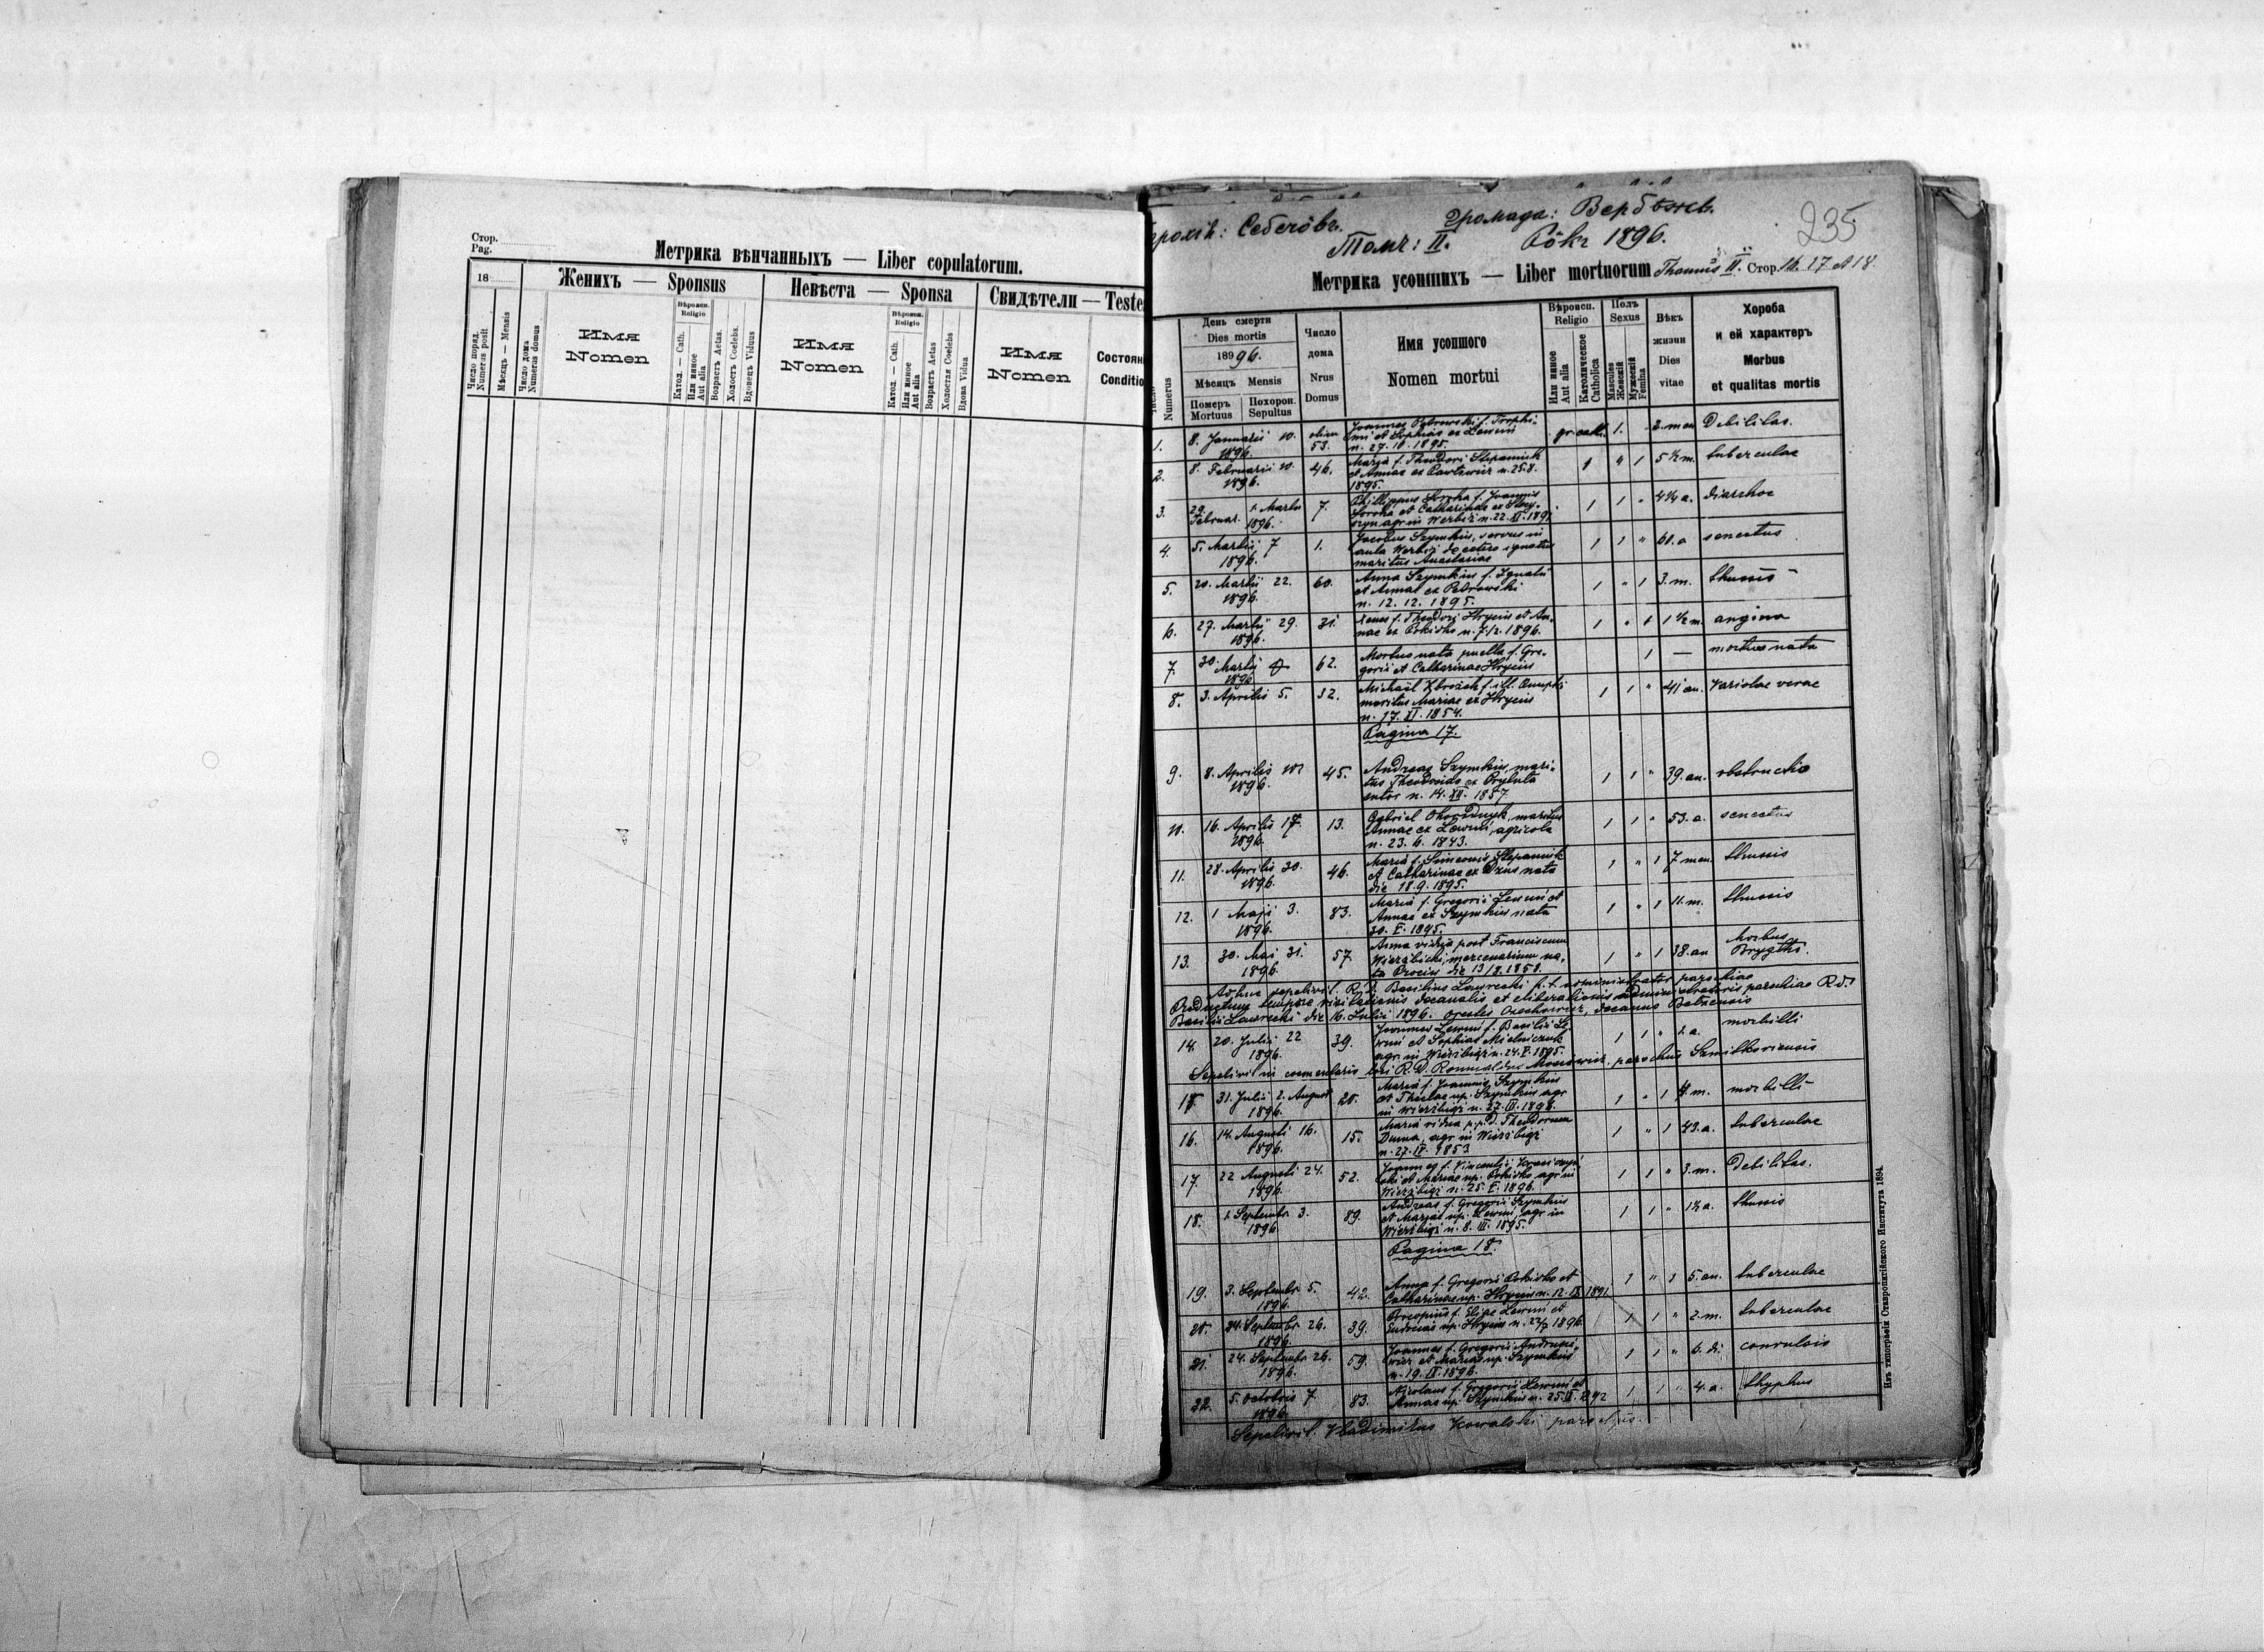 Стор.
Pag.
Метрика вѣнчанныхъ — Liber copulatorum.
18
Женихъ — Sponsus
Невѣста — Sponsa
Свидѣтели — Teste
Число поряд.
Numerus posit
Мѣсяцъ — Mensis
Число дома
Numerus domus
Имя
Nomen
Вѣроисп.
Religio
Катол. — Cath.
Или иное
Aut alia
Возрастъ Aetas.
Холостъ Coelebs.
Вдовецъ Viduus
Имя
Nomen
Вѣроисп.
Religio
Катол. — Cath.
Или иное
Aut alia
Возрастъ Aetas
Холостая Coelebs
Вдова Vidua
Имя
Nomen
Состоян
Conditio
235
Громада:
Томъ: II. Рôкъ 1896.
Метрика усопшихъ — Liber mortuorum II. Стор. 16. 17 et 18
Numerus
День смерти
Dies mortis
1896.
Мѣсяцъ Mensis
Померъ
Mortuus
Похорон.
Sepultus
Число
дома
Nrus
Domus
Имя усопшого
Nomen mortui
Вѣроисп.
Religio
Или иное
Aut alia
Католическое
Catholica
Полъ
Sexus
Mascules
Женскій
Мужескій
Femina
Вѣкъ
жизни
Dies
vitae
Хороба
и ей характеръ
Morbus
et qualitas mortis
1. 8. Januarii 10. 1896. 53. Joannes f. Trophi-
mi et Sophiae ex Lewuń
n. 27. 10. 1895. gr. cath. 1. 2. men Debilitas.
2. 8. Februarii 10. 1896. 46. Maria f. Theodori Stepaniuk
et Annae ex n. 25. 8.
1895. 1 " 1 5½ m. tuberculae
3. 29. Februar. 1. Martii 1896. 7. Phillippus Soroka f. Joannis
Soroka et Catharinae ex
agr in Werbiż n. 22. XI. 1891 1 1 " 4¼ a. diarrhoe
4. 5. Martii 7 1896. 1. Jacobus Szymkiw, servus in
aula Werbiż de cetero ignotus
maritus Anastasiae 1 1 " 60. a senectus
5. 20. Martii 22. 1896. 60. Anna Szymkiw f. Ignatii
et Annae ex Petrowski
n. 12. 12. 1895. 1 " 1 3. m. thussis
6. 27. Martii 29. 1896. 31. Xenes f. Theodori Hryciw et An-
nae ex n. 7/2. 1896. 1 " 1 1½ m. angina
7. 30. Martii 1896 62. Mortuo nata puella f. Gre-
gorii et Catharinae Hryciw 1 — mortuo nata
8. 3. Aprilis 5. 32. Michaël f. ill.
maritus Mariae ex Hryciw
n. 17. XI. 1854. 1 1 " 41 an. Variolae verae
Pagina 17.
9. 8. Aprilis 10 1896. 45. Andreas Szymkiw, mari-
tus ex Pryluta
sutor n. 14. XII. 1857. 1 1 " 39. an. obstructio
10. 16. Aprilis 17. 1896. 13. Gabriel Ohorodnyk, maritus
Annae ex Lewuń, agricola
n. 23. 6. 1843. 1 1 " 53. a. senectus
11. 28. Aprilis 30. 1896. 46. Maria f. Simeonis Stepaniuk
et Catharinae ex Dzus nata
die 18. 9. 1895. 1 " 1 7 men. thussis
12. 1 Maji 3. 1896. 83. Maria f. Gregorii Lewuń et
Annae ex Szymkiw nata
30. V. 1895. 1 " 1 11. m. thussis
13. 30. Mai 31. 1896. 57. Anna vidua post Franciscum
Wierzbicki, mercenarium na-
ta die 13/2. 1858. 1 " 1 38. an Morbus
Brygthi.
Adhuc sepelivit R. d. Basilius Lawrecki p. t. administrator parochiae
Productum tempore visitationis decanalis et administratoris parochiae R. d.
Basilii Lawrecki die 16. Julii 1896. Orestes decanus Belzensis
14. 20. Julii 22 1896. 39. Joannes Lewuń f. Basilii Le-
wuń et Sophiae Mielniczuk
agr. in Wierzbiąż n. 24. V. 1895. 1 1 " 1. a. morbilli
Sepelivit in coementerio loci R. D. Romualdus parochus
15. 31. Julii 2. August 1896. 20. Maria f. Joannis Szymkiw
et Theclae np. Szymkiw agr
in Wierzbiąż n. 27. III. 1896. 1 " 1 4. m. morbilli
16. 14. Augusti 16. 1896. 15. Maria vidua p. p. d. Theodorum
Duma, agr in Wierzbiąż
n. 27. IV. 1853 1 " 1 43. a. tuberculae
17. 22 Augusti 24. 1896. 52. Joannes f. Vincentii
et Mariae np. agr in
Wierzbiąż n. 25. V. 1896. 1 1 " 3. m. Debilitas.
18. 1. Septembr. 3. 1896 89. Andreas f. Gregorii Szymkiw
et Mariae np. Lewuń, agr in
Wierzbiąż n. 8. III. 1895. 1 1 " 1½ a. thussis
Pagina 18.
19. 3. Septembr. 5. 1896 42. Anna f. Gregorii et
Catharinae np. Hryciw n. 12. IX. 1891 1 " 1 5. an. tuberculae
20. 24. Septembr. 26. 1896 39. Procopius f. Eliae Lewuń et
Eudociae np. Hryciw n. 22/7 1896. 1 1 " 2. m. tuberculae
21. 24. Septembr. 26. 1896. 59. Joannes f. Gregorii
et Mariae np. Szymkiw
n. 19. IX. 1896. 1 1 " 6. di. convulsis
22. 5. Octobris 7 1896 83. Nicolaus f. Gregorii Lewuń et
Annae np. Szymkiw n. 1892 1 1 " 4. a. thyphus
Sepelivit Vladimirus Kowalski parochus.
Изъ типографіи Ставропигійского Института 1894.